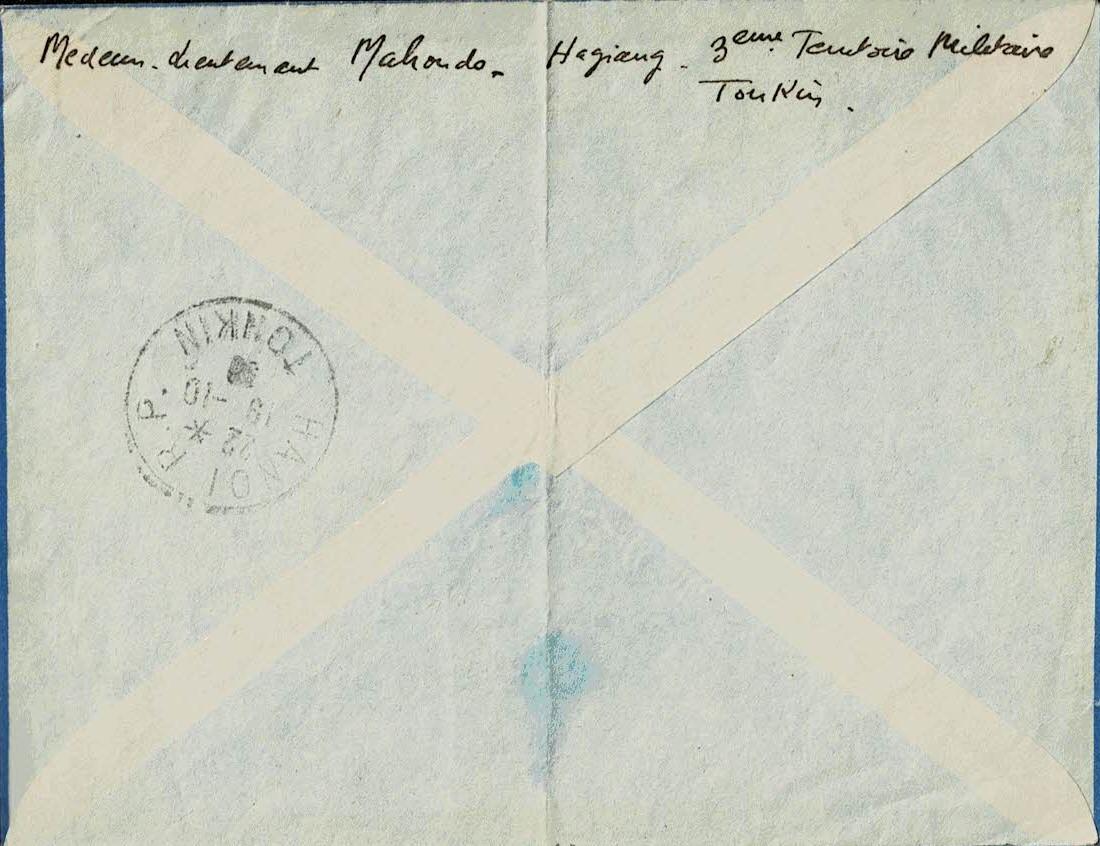 Medecin-Lieutenant Mahondo- Hagiang. 3eme Territoire Militaire
Tonkin.
HANOI R.P.
TONKIN
22 *
19-10